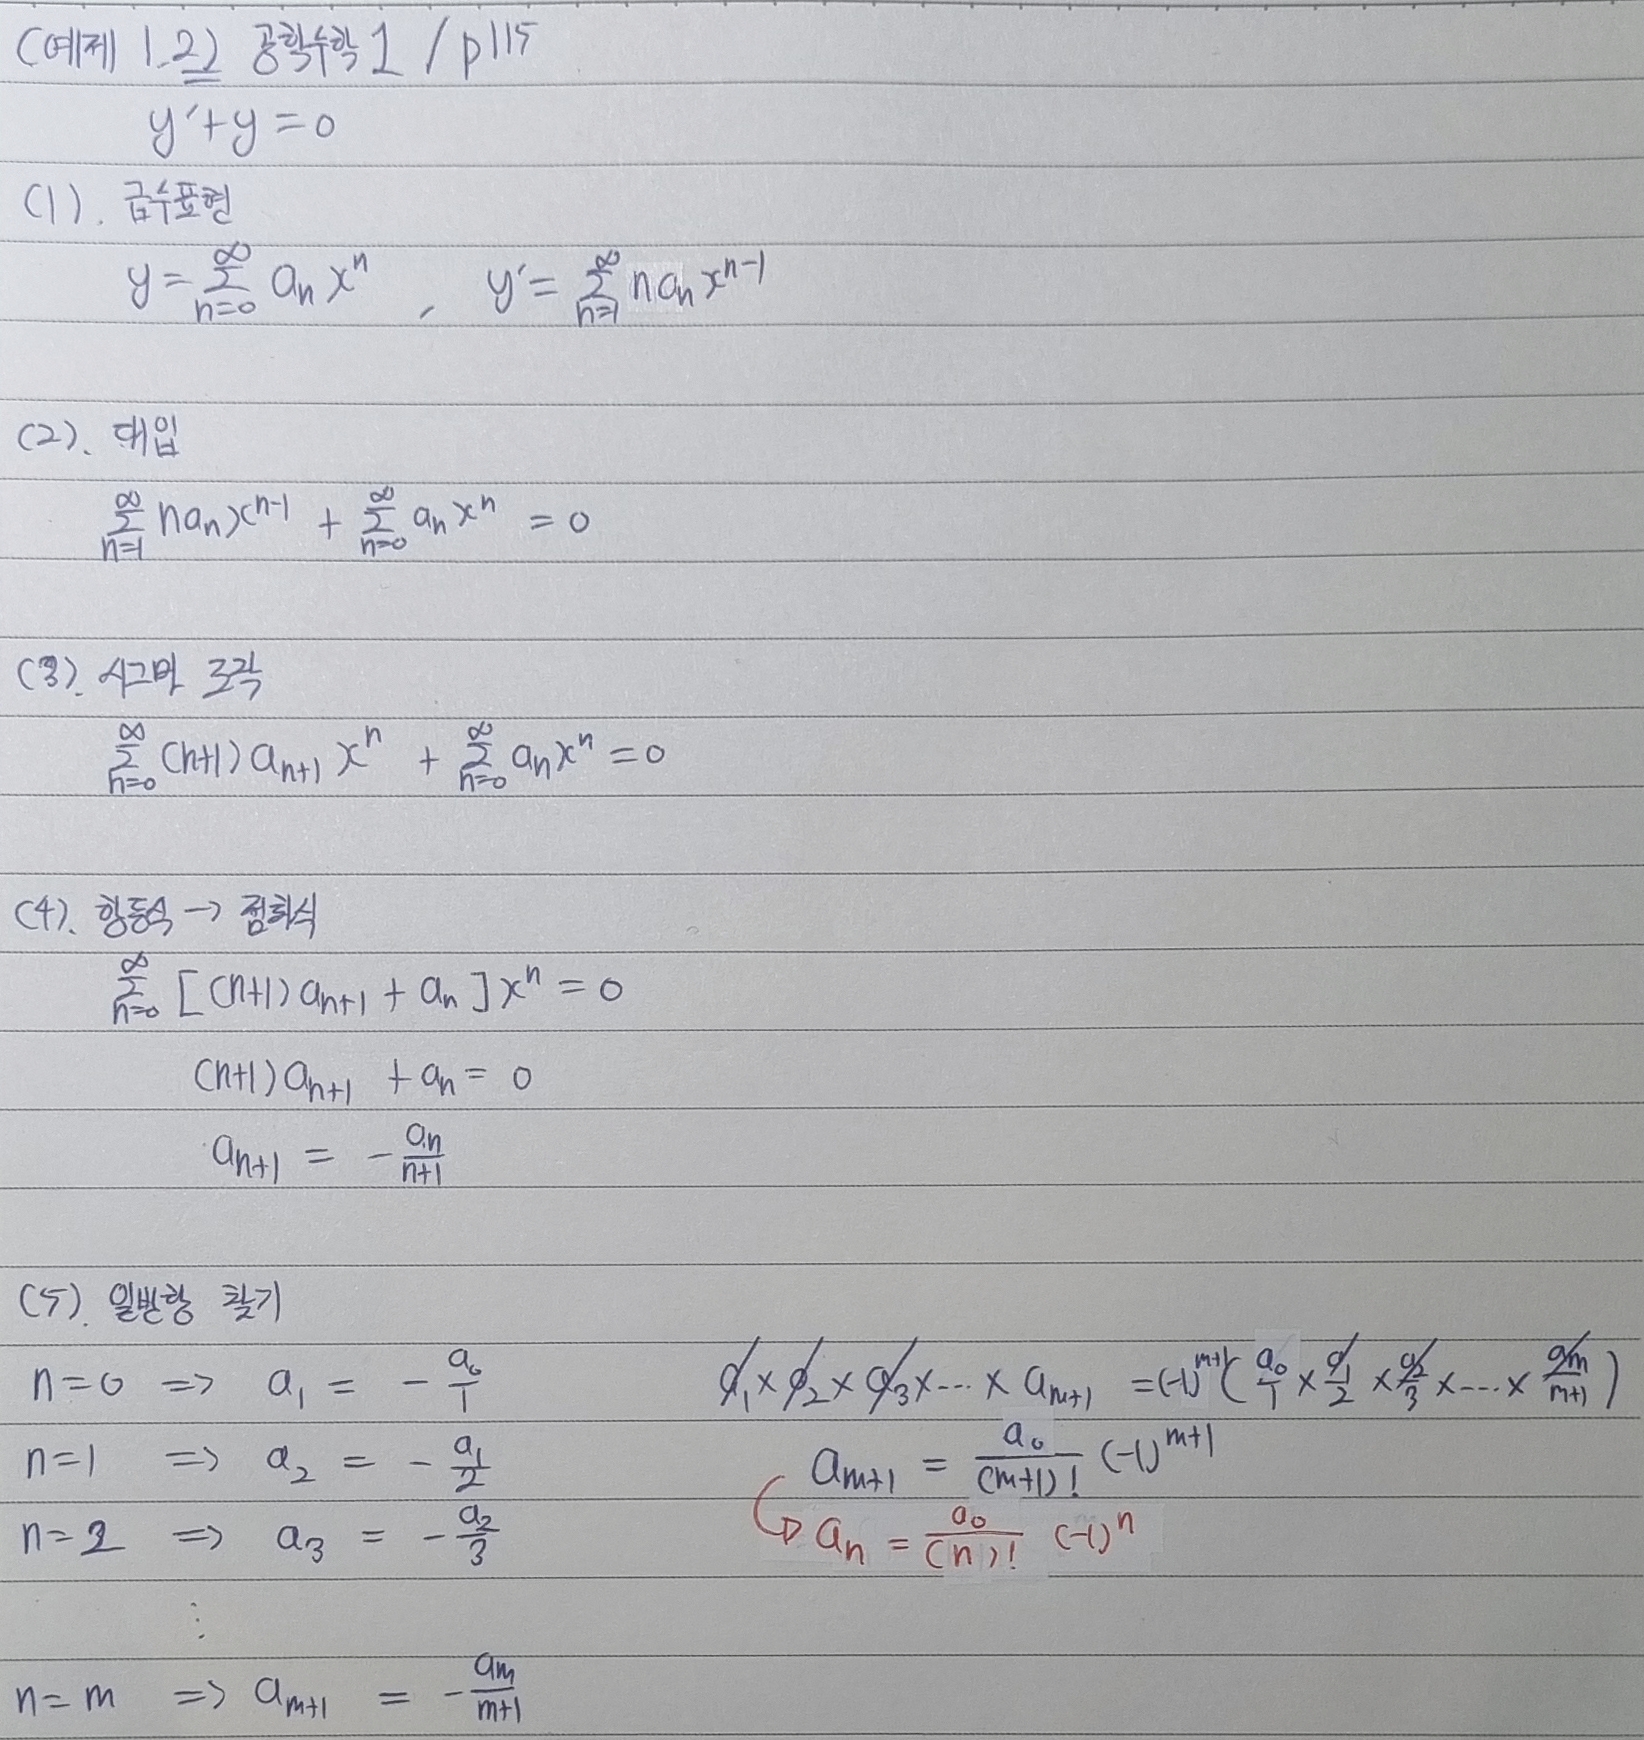 (예제 1.2) 공학수학1 / p115
y′+y=0
(1). 급수표현
y=∑_{n=0}^{∞} a_n x^n , y′=∑_{n=1}^{∞} n a_n x^{n-1}
(2). 대입
∑_{n=1}^{∞} n a_n x^{n-1} + ∑_{n=0}^{∞} a_n x^n = 0
(3). 시그마 조작
∑_{n=0}^{∞} (n+1) a_{n+1} x^n + ∑_{n=0}^{∞} a_n x^n = 0
(4). 항등식 → 점화식
∑_{n=0}^{∞} [(n+1) a_{n+1} + a_n] x^n = 0
(n+1) a_{n+1} + a_n = 0
a_{n+1} = - a_n/(n+1)
(5). 일반항 찾기
n=0 => a_1 = - a_0/1
n=1 => a_2 = - a_1/2
n=2 => a_3 = - a_2/3
⋮
n=m => a_{m+1} = - a_m/(m+1)
a_1 × a_2 × a_3 × ... × a_{m+1} = (-1)^{m+1} ( a_0/1 × a_1/2 × a_2/3 × ... × a_m/(m+1) )
a_{m+1} = a_0/(m+1)! (-1)^{m+1}
a_n = a_0/(n)! (-1)^n